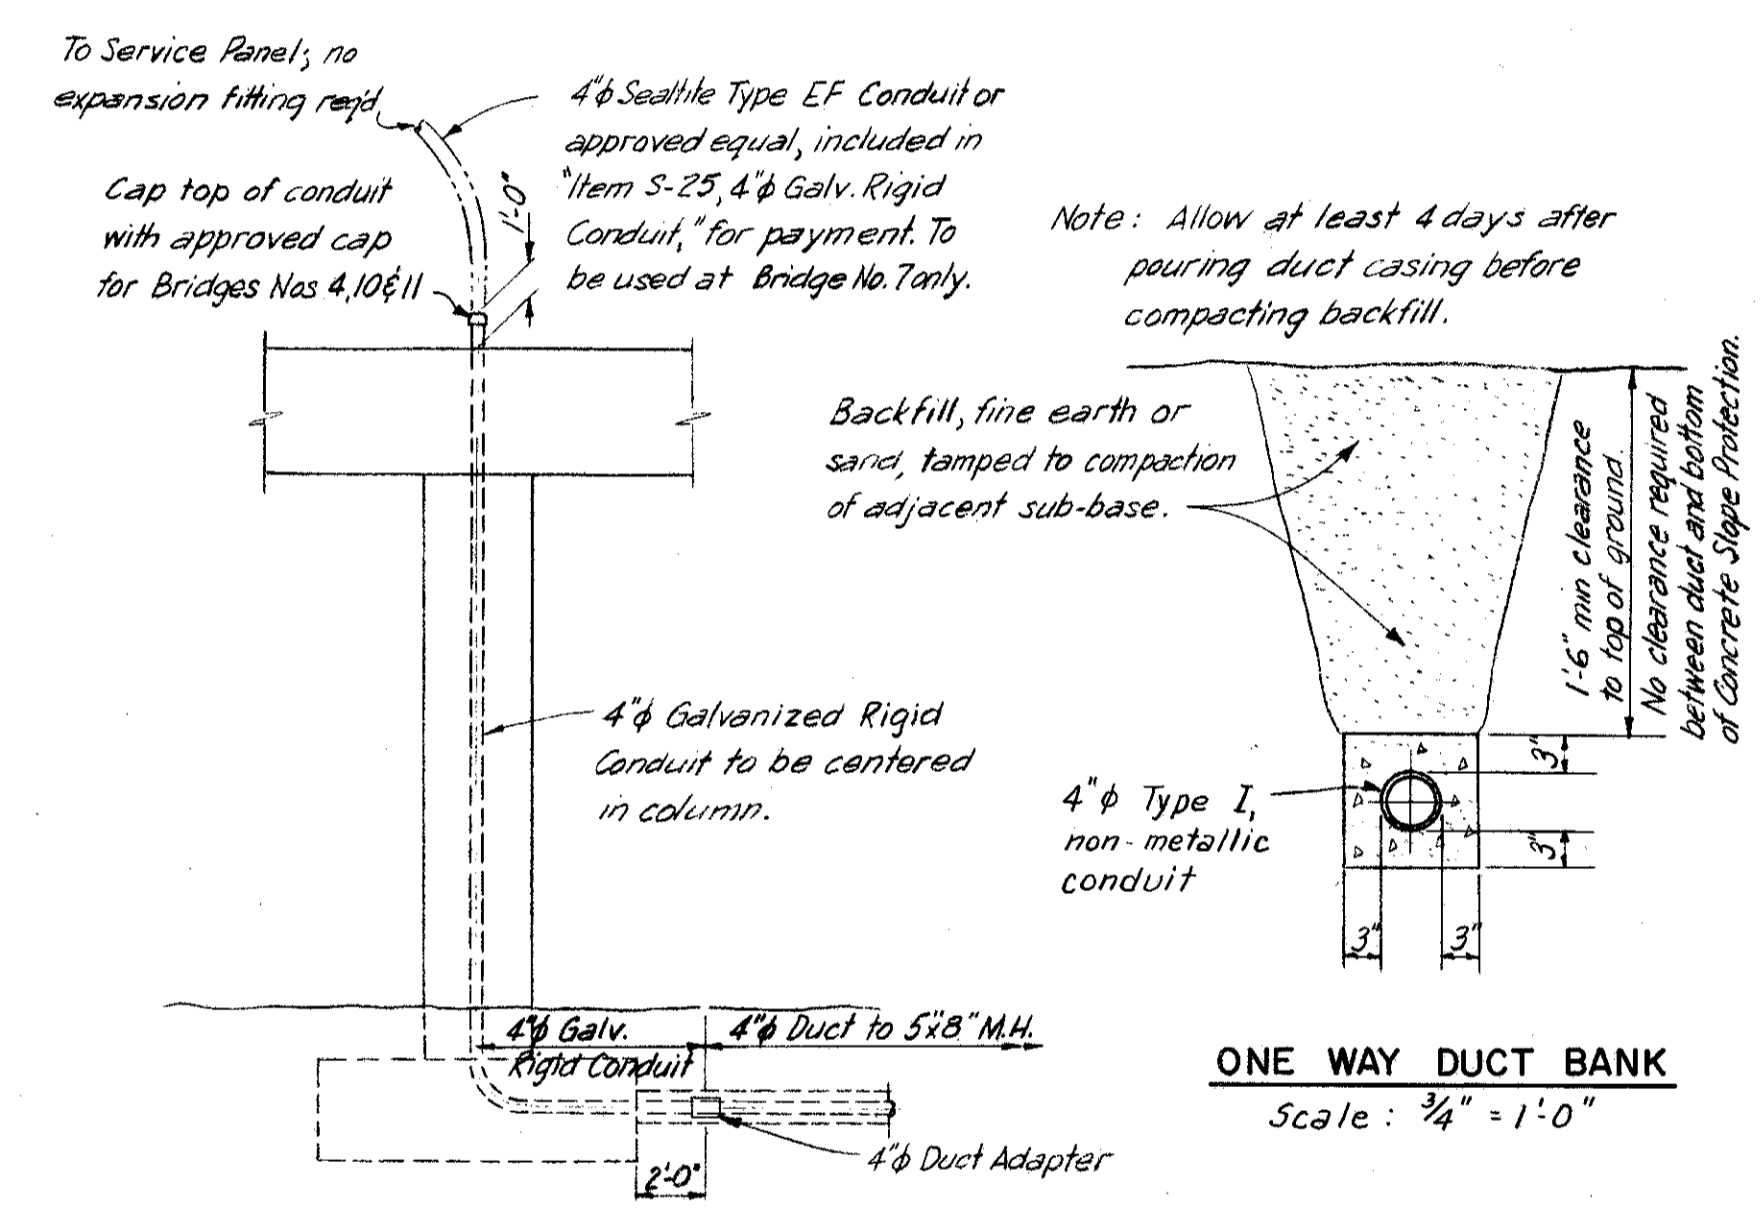 To Service Panel; no
expansion fitting req'd
4"ϕ Sealtite Type EF Conduit or
approved equal, included in
"Item S-25, 4"ϕ Galv. Rigid
Conduit," for payment. To
be used at Bridge No. 7 only.
Cap top of conduit
with approved cap
for Bridges Nos 4,10&11
1'-0"
4"ϕ Galvanized Rigid
Conduit to be centered
in column.
4"ϕ Galv.
Rigid Conduit
4"ϕ Duct to 5'x8" M.H.
2'-0"
4"ϕ Duct Adapter
Note: Allow at least 4 days after
pouring duct casing before
compacting backfill.
Backfill, fine earth or
sand, tamped to compaction
of adjacent sub-base.
1'-6" min clearance
to top of ground.
No clearance required
between duct and bottom
of Concrete Slope Protection.
4"ϕ Type I,
non-metallic
conduit
3"
3"
3"
3"
ONE WAY DUCT BANK
Scale: 3/4" = 1'-0"